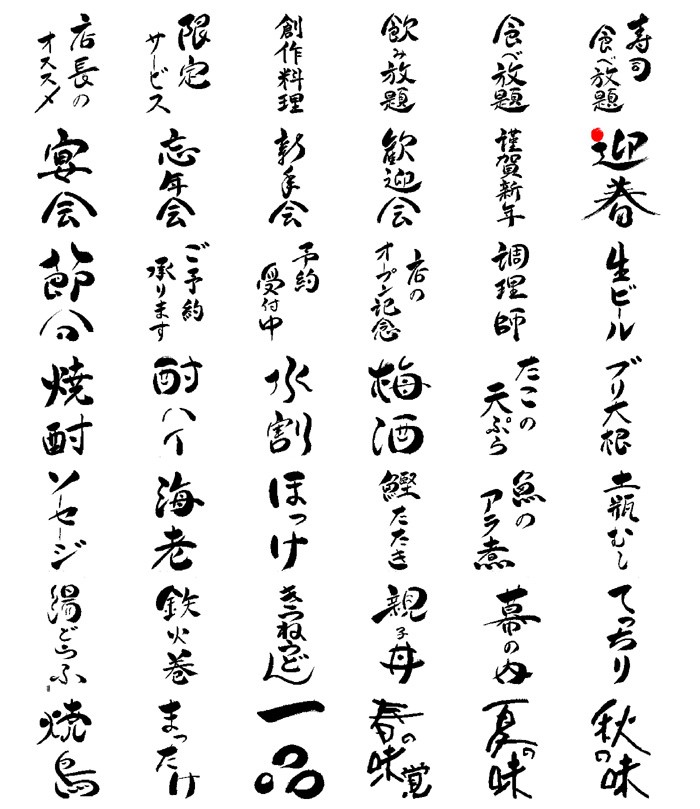 店長の
オススメ
限定
サービス
創作料理
飲み放題
食べ放題
寿司
食べ放題
宴会
忘年会
新年会
歓迎会
謹賀新年
迎春
節分
ご予約
承ります
予約
受付中
店の
オープン記念
調理師
生ビール
焼酎
酎ハイ
水割
梅酒
たこの
天ぷら
ブリ大根
ソーセージ
海老
ほっけ
鰹たたき
魚の
アラ煮
土瓶むし
湯どうふ
鉄火巻
きつねうどん
親子丼
幕の内
てっちり
焼鳥
まつたけ
一品
春の味覚
夏の味
秋の味